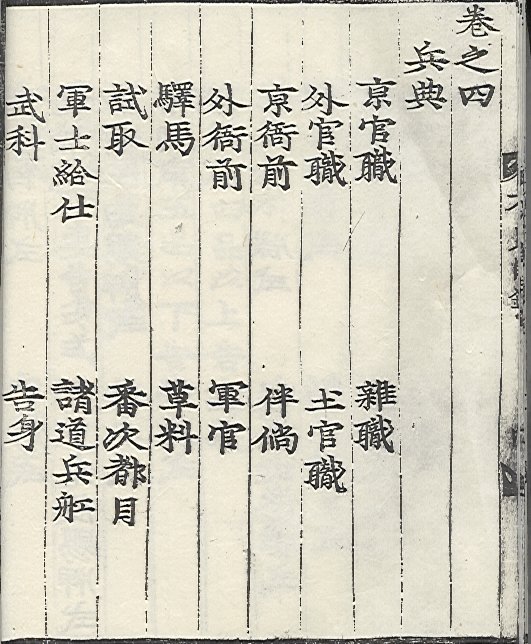 卷之四
兵典
京官職 雜職
外官職 土官職
京衙前 伴倘
外衙前 軍官
驛馬 草料
試取 番次都目
軍士給仕 諸道兵舩
武科 告身